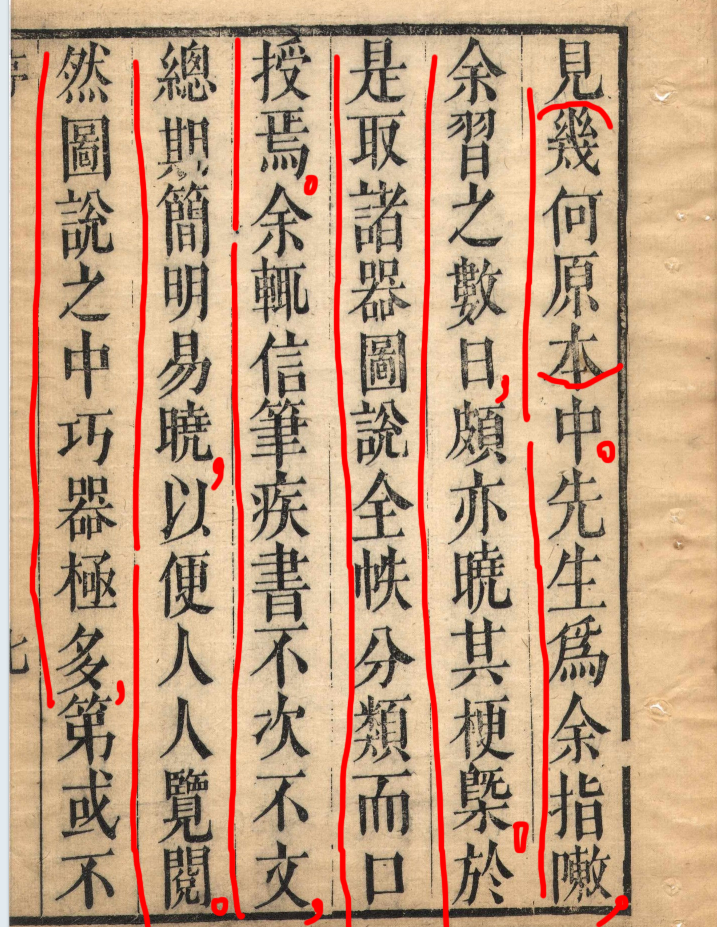 見幾何原本中先生爲余指嗷
余習之數日頗亦曉其梗槩於
是取諸器圖說全帙分類而口
授焉余輒信筆疾書不次不文
總期簡明易曉以便人人覽閱
然圖說之中巧器極多第或不